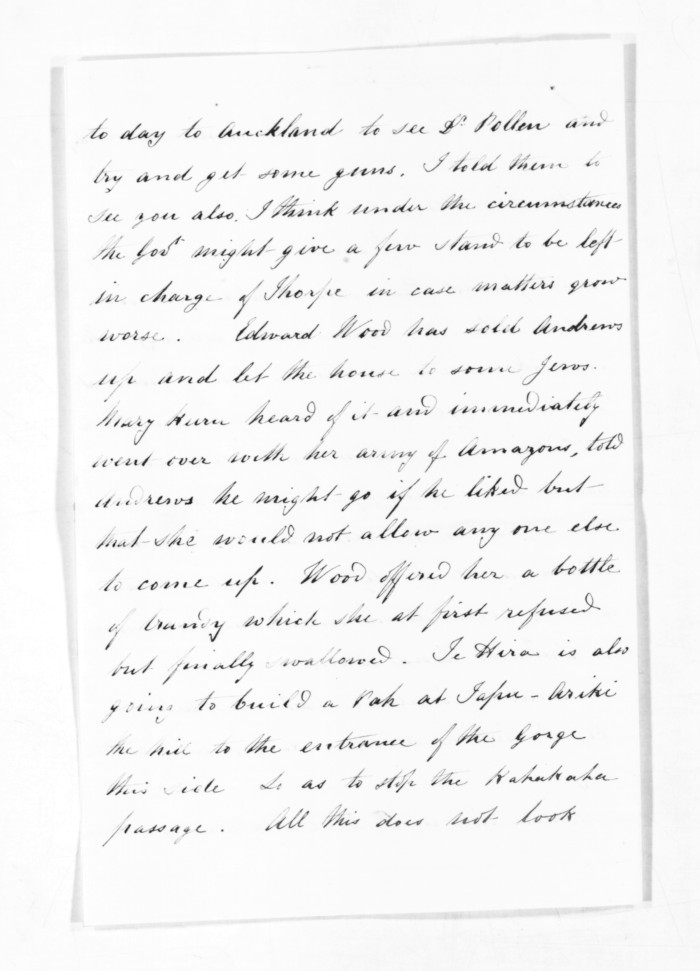 to day to Auckland to see Dr. Pollen and
try and get some guns. I told them to
see you also. I think under the circumstances
the Govt might give a few stand to be left
in charge of Thorpe in case matters grow
worse. Edward Wood has sold Andrews
up and let the house to some Jews.
Mary Huru heard of it and immediately
went over with her army of Amazons, told
Andrews he might go if he liked but
that she would not allow any one else
to come up. Wood offered her a bottle
of brandy which she at first refused
but finally swallowed. Te Hira is also
going to build a Pah at Tapu-Ariki
the hill to the entrance of the Gorge
this side so as to stop the Kahakaha
passage. All this does not look